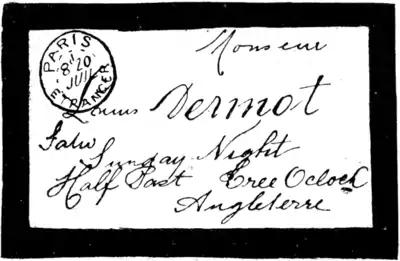 PARIS
8 20
JUIL
ETRANGER
Monsieur
Dermot
Sunday Night
Half Past Eree Oclock
Angleterre